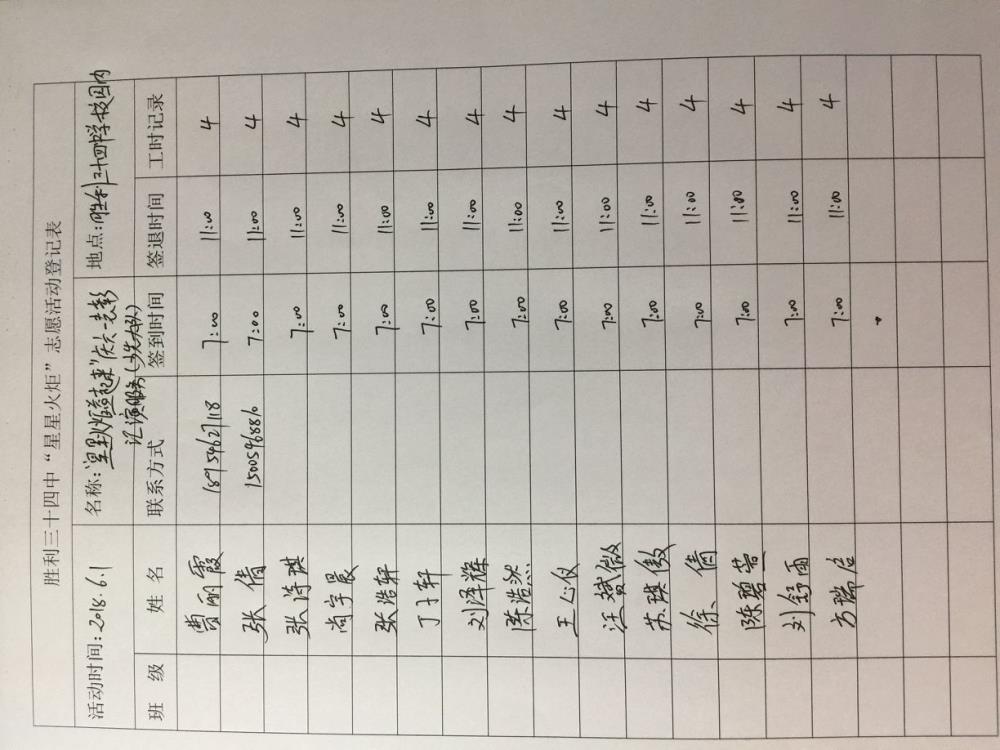 胜利三十四中“星星火炬”志愿活动登记表
活动时间：2018.6.1 名称：“星星火炬燃起来”庆六一表彰 地点：胜利三十四中学校园内
汇演服务(少先大队)
班 级 姓 名 联系方式 签到时间 签退时间 工时记录
曹丽霞 18954627118 7:00 11:00 4
张倩 15005468816 7:00 11:00 4
张诗琪 7:00 11:00 4
尚宇晨 7:00 11:00 4
张浩轩 7:00 11:00 4
丁子轩 7:00 11:00 4
刘泽耀 7:00 11:00 4
陈浩然 7:00 11:00 4
王心仪 7:00 11:00 4
汪斌微 7:00 11:00 4
苏琪傲 7:00 11:00 4
徐倩 7:00 11:00 4
陈碧芸 7:00 11:00 4
刘舒雨 7:00 11:00 4
方瑞启 7:00 11:00 4